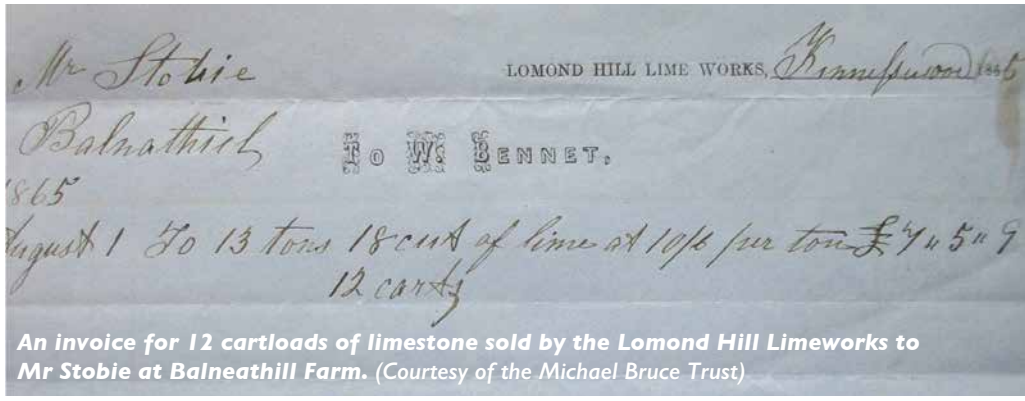 Mr Stobie
LOMOND HILL LIME WORKS, Kinnesswood 1865
Balnathiel
To W. BENNET,
1865
August 1 To 13 tons 18 cwt of lime at 10/6 per ton £7" 5" 9
12 carts
An invoice for 12 cartloads of limestone sold by the Lomond Hill Limeworks to
Mr Stobie at Balneathill Farm. (Courtesy of the Michael Bruce Trust)